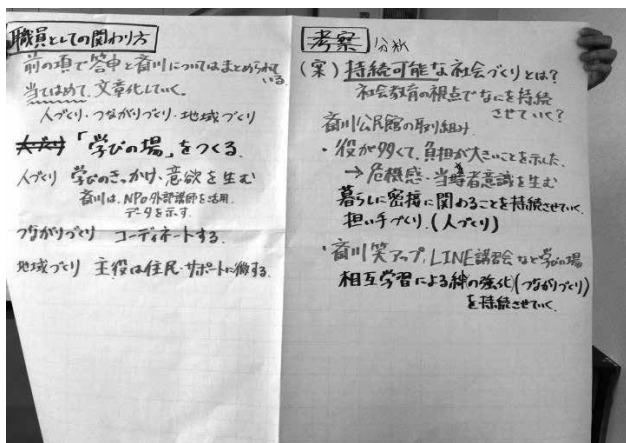 職員としての関わり方
前の項で答申と香川についてはまとめられている
当てはめて、文章化していく。
人づくり・つながりづくり・地域づくり
「学びの場」をつくる
人づくり 学びのきっかけ、意欲を生む
香川は、NPO外部講師を活用。
データを示す。
つながりづくり コーディネートする。
地域づくり 主役は住民・サポートに徹する。
考察 分析
(案) 持続可能な社会づくりとは?
社会教育の視点でなにを持続
させていく?
香川公民館の取り組み
・役が多くて、負担が大きいことを示した。
→危機感・当事者意識を生む
暮らしに密接に関わることを持続させていく
担い手づくり。(人づくり)
・香川笑アップ、LINE講習会など学びの場
相互学習による絆の強化(つながりづくり)
を持続させていく